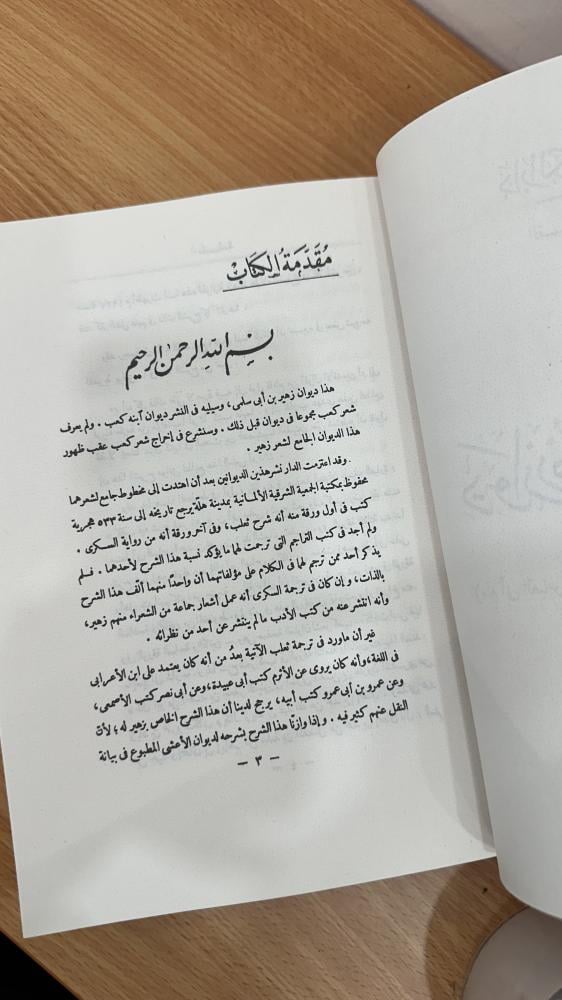 مُقَدِّمَةُ الكِتَابِ
بسم الله الرحمن الرحيم
هذا ديوان زهير بن أبى سلمى، وسيليه فى النشر ديوان آبنه كعب . ولم يعرف
شعر كعب مجموعا فى ديوان قبل ذلك . وسنشرع فى إخراج شعر كعب عقب ظهور
هذا الديوان الجامع لشعر زهير .
وقد اعتزمت الدار نشر هذين الديوانين بعد أن اهتدت إلى مخطوط جامع لشعرهما
محفوظ بمكتبة الجمعية الشرقية الألمانية بمدينة هالّة يرجع تاريخه إلى سنة ٥٣٣ هجرية
كتب فى أول ورقة منه أنه شرح ثعلب، وفى آخر ورقة أنه من رواية السكرى .
ولم أجد فى كتب التراجم التى ترجمت لهما ما يؤكد نسبة هذا الشرح لأحدهما . فلم
يذكر أحد ممن ترجم لهما فى الكلام على مؤلفاتهما أن واحدًا منهما ألّف هذا الشرح
بالذات، وإن كان فى ترجمة السكرى أنه عمل أشعار جماعة من الشعراء منهم زهير،
وأنه انتشر عنه من كتب الأدب ما لم ينتشر عن أحد من نظرائه .
غير أن ماورد فى ترجمة ثعلب الآتية بعدُ من أنه كان يعتمد على ابن الأعرابى
فى اللغة، وأنه كان يروى عن الأثرم كتب أبى عبيدة، وعن أبى نصر كتب الأصمعى،
وعن عمرو بن أبى عمرو كتب أبيه، يرجح لدينا أن هذا الشرح الخاص بزهير له؛ لأن
النقل عنهم كثير فيه . وإذا وازنّا هذا الشرح بشرحه لديوان الأعشى المطبوع فى بيانة
— ٣ —